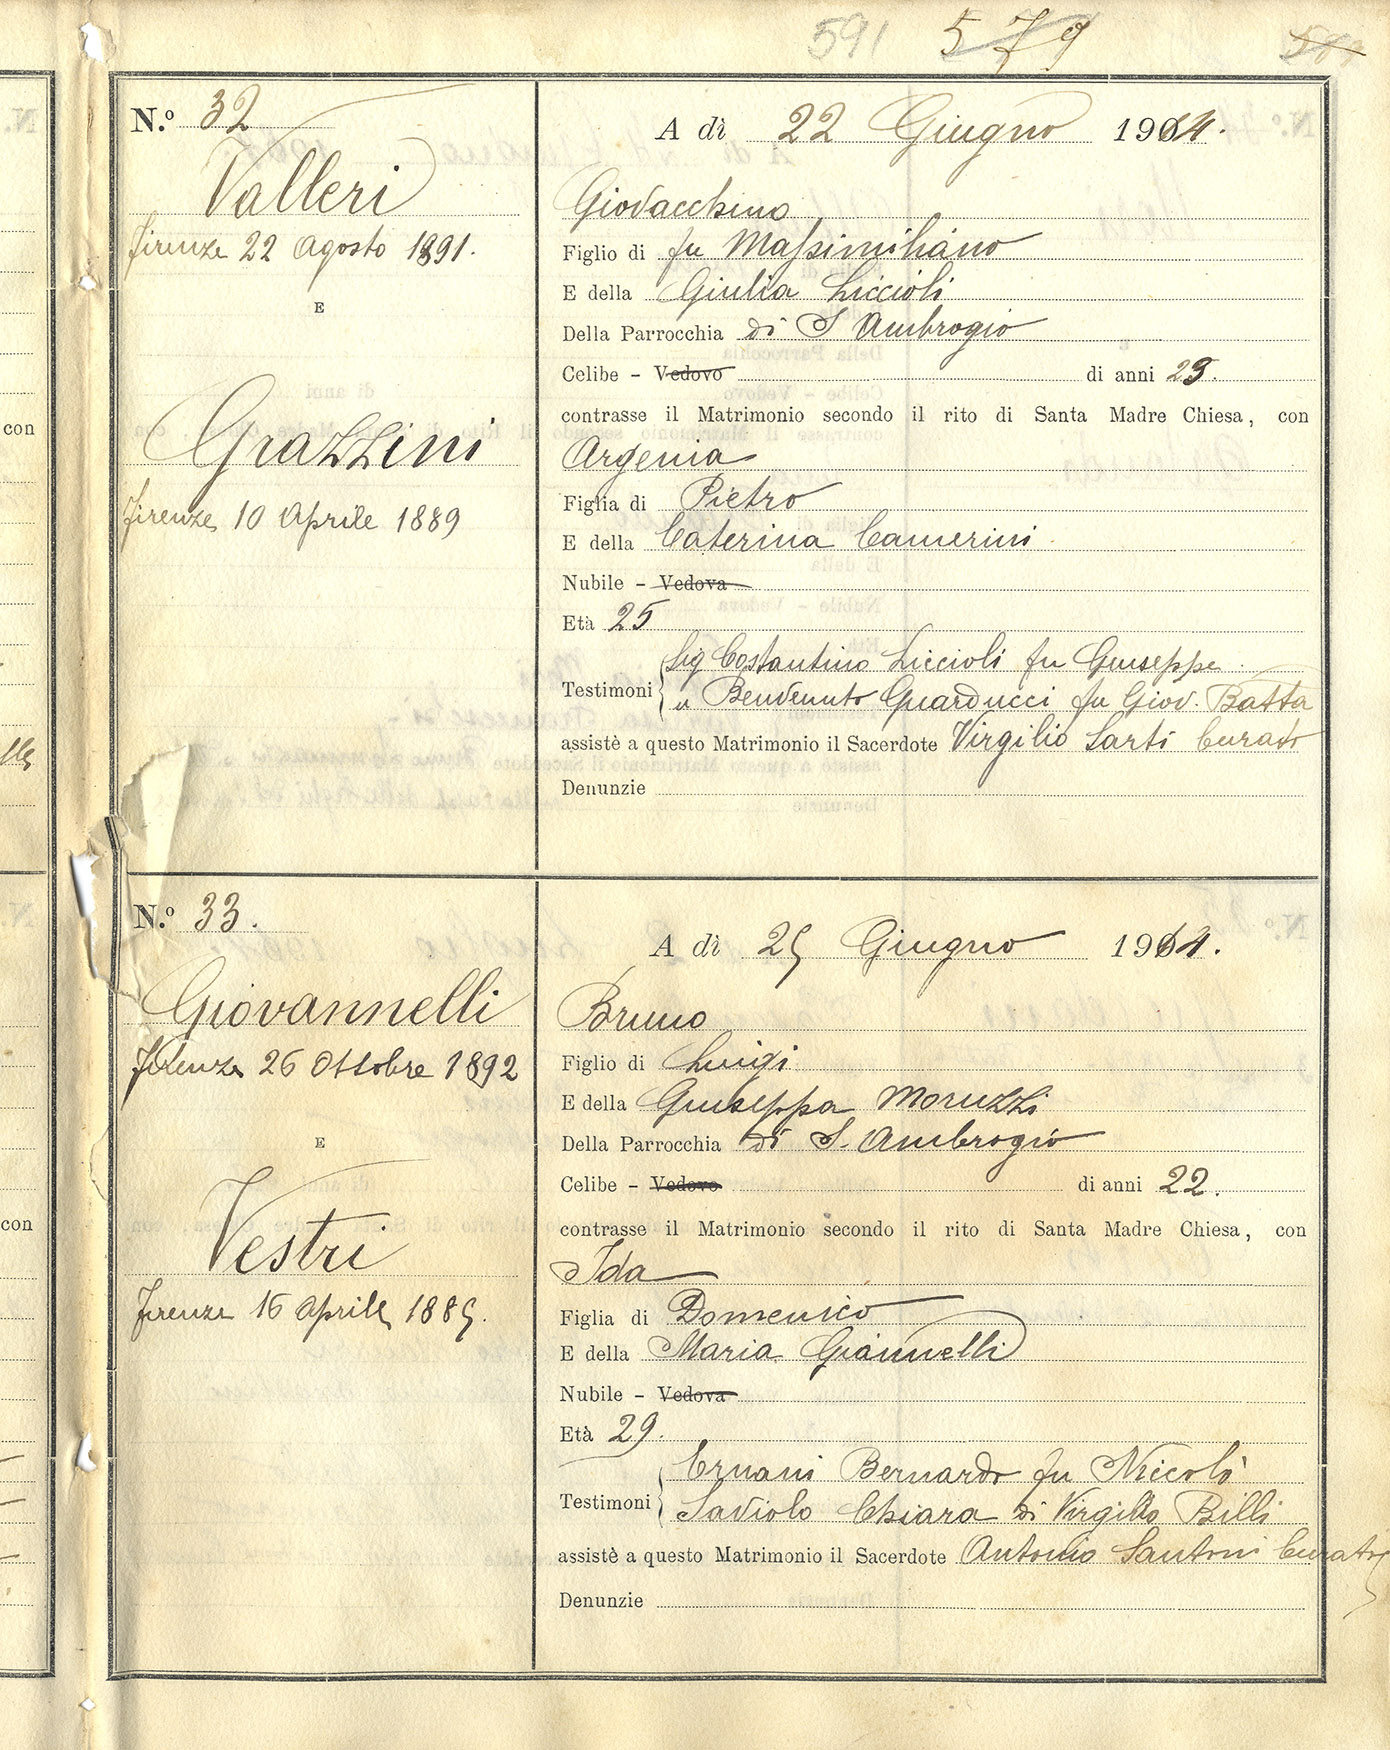 591 579
N.º 32
Valleri
Firenze 22 Agosto 1891.
E
Grazzini
Firenze 10 Aprile 1889
A dì 22 Giugno 1914.
Giovacchino
Figlio di fu Massimiliano
E della Giulia Liccioli
Della Parrocchia di S Ambrogio
Celibe - Vedovo di anni 23.
contrasse il Matrimonio secondo il rito di Santa Madre Chiesa, con
Argenia
Figlia di Pietro
E della Caterina Camerini
Nubile - Vedova
Età 25
Testimoni Sig Costantino Liccioli fu Giuseppe
" Benvenuto Guarducci fu Giov. Batta
assistè a questo Matrimonio il Sacerdote Virgilio Sarti Curato
Denunzie
N.º 33.
Giovannelli
Firenze 26 Ottobre 1892
E
Vestri
Firenze 16 Aprile 1885.
A dì 25 Giugno 1914.
Bruno
Figlio di Luigi
E della Giuseppa Moruzzi
Della Parrocchia di S. Ambrogio
Celibe - Vedovo di anni 22.
contrasse il Matrimonio secondo il rito di Santa Madre Chiesa, con
Ida
Figlia di Domenico
E della Maria Giannelli
Nubile - Vedova
Età 29.
Testimoni Ernani Bernardo fu Niccolò
Saviolo Chiara di Virgilio Billi
assistè a questo Matrimonio il Sacerdote Antonio Santoni Curato
Denunzie
con
con